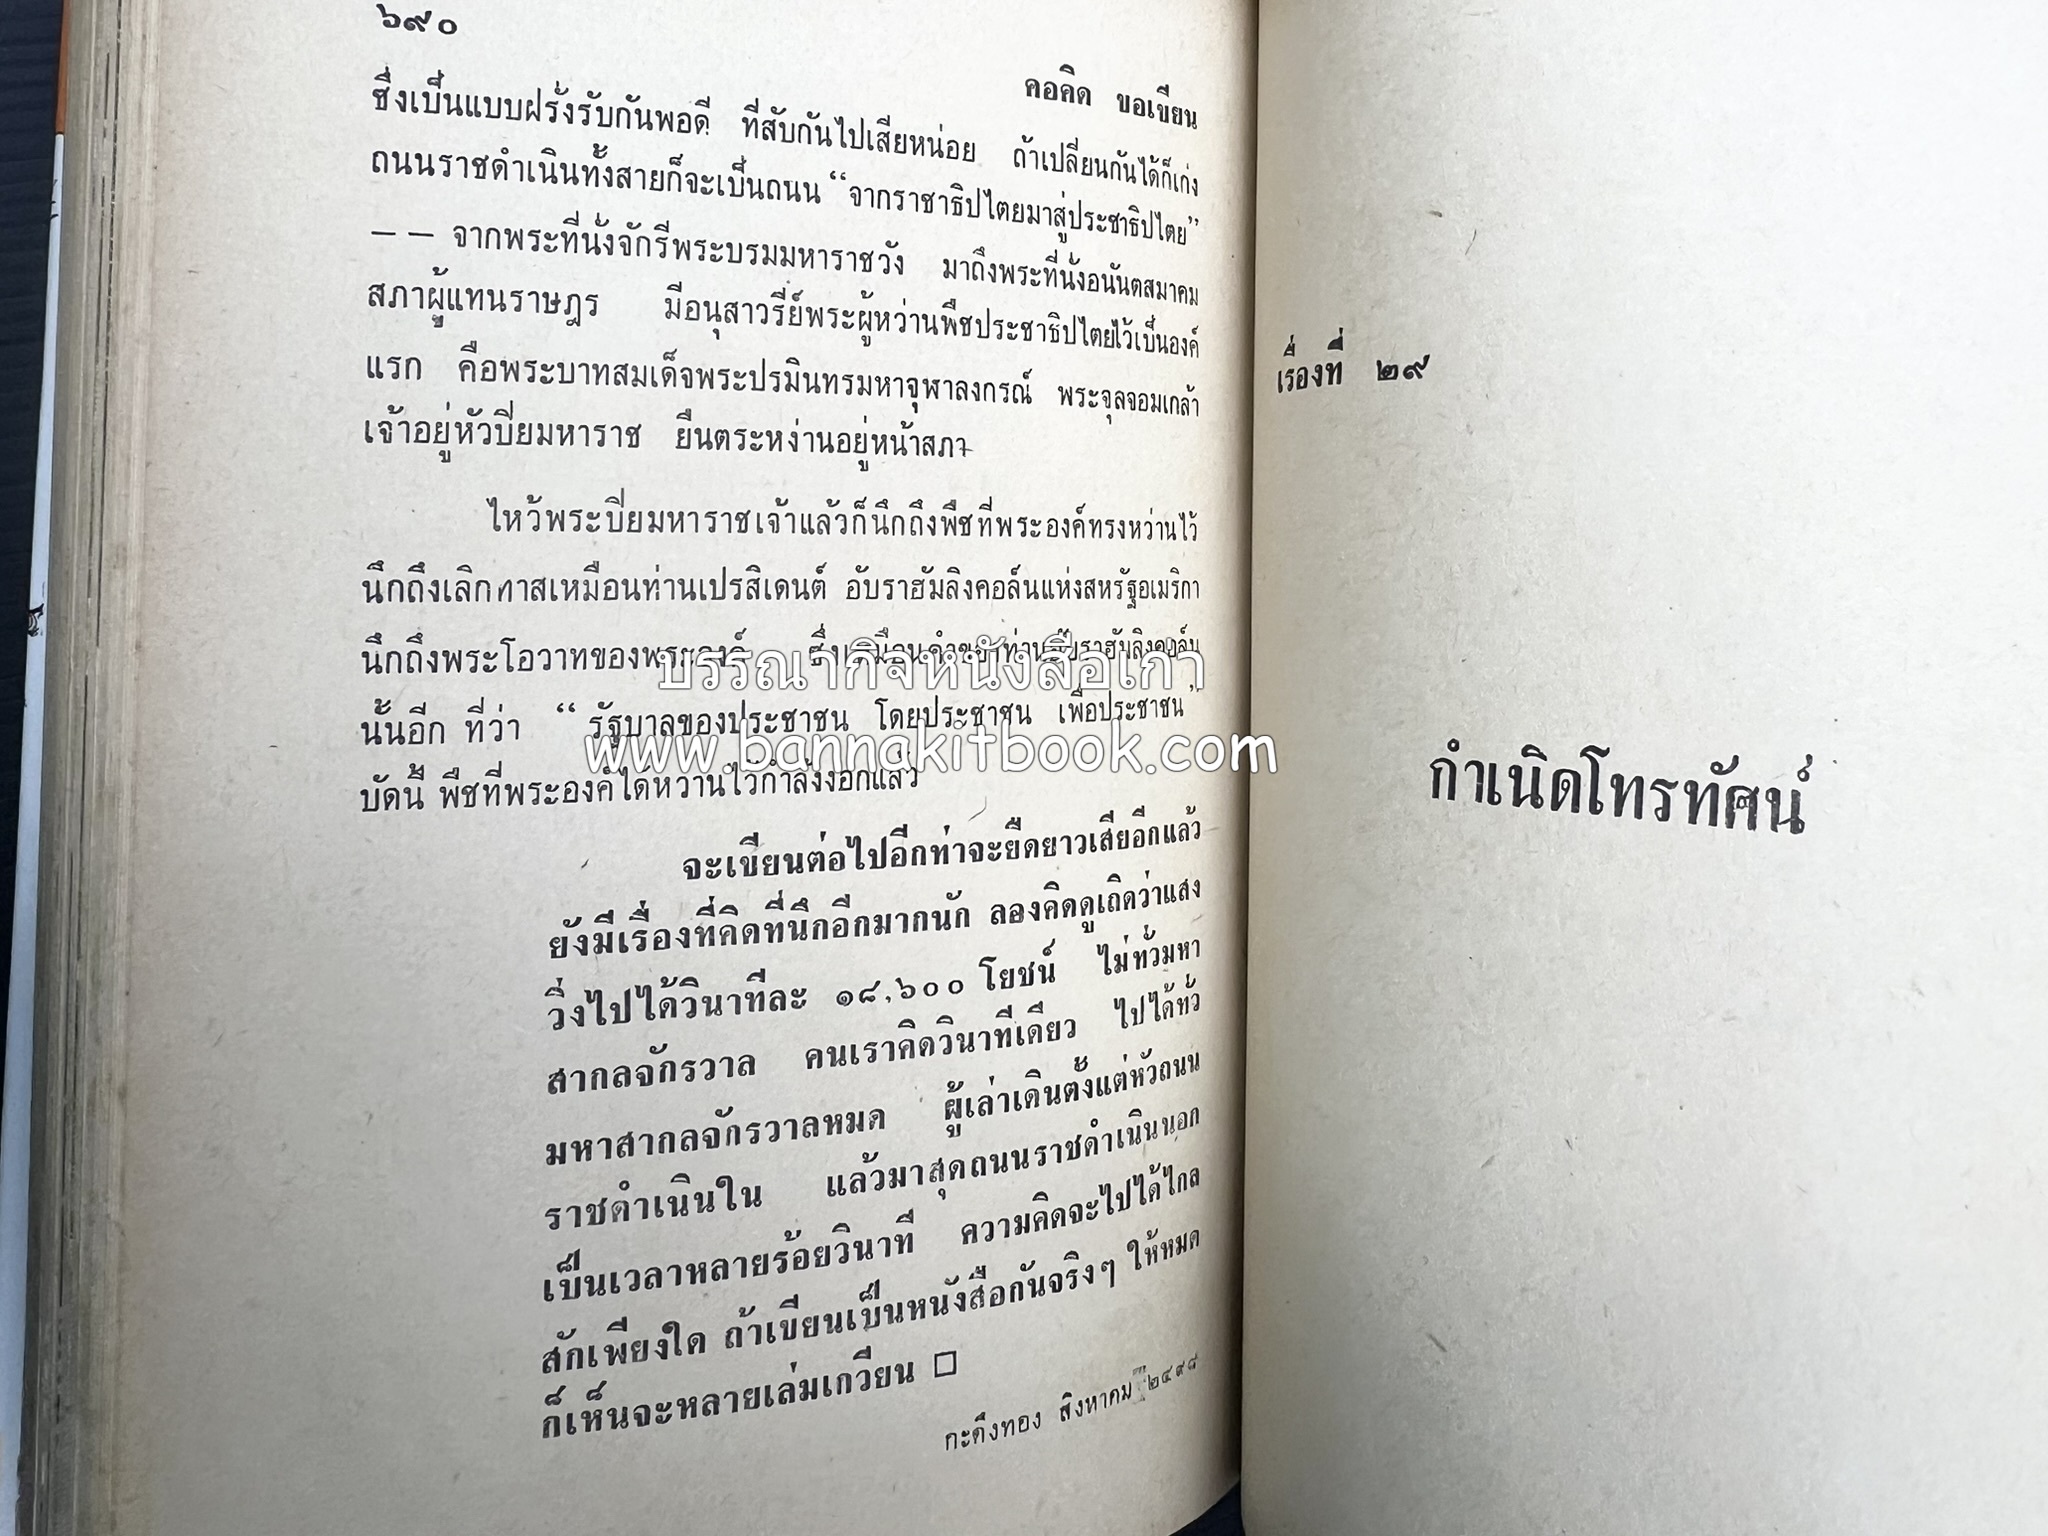 ๖๙๐
คอคิด ขอเขียน
ซึ่งเป็นแบบฝรั่งรับกันพอดี ที่สับกันไปเสียหน่อย ถ้าเปลี่ยนกันได้ก็เก๋ง
ถนนราชดำเนินทั้งสายก็จะเป็นถนน “จากราชาธิปไตยมาสู่ประชาธิปไตย”
— — จากพระที่นั่งจักรีพระบรมมหาราชวัง มาถึงพระที่นั่งอนันตสมาคม
สภาผู้แทนราษฎร มีอนุสาวรีย์พระผู้หว่านพืชประชาธิปไตยไว้เป็นองค์
แรก คือพระบาทสมเด็จพระปรมินทรมหาจุฬาลงกรณ์ พระจุลจอมเกล้า
เจ้าอยู่หัวปิยมหาราช ยืนตระหง่านอยู่หน้าสภา
ไหว้พระปิยมหาราชเจ้าแล้วก็นึกถึงพืชที่พระองค์ทรงหว่านไว้
นึกถึงเลิกทาสเหมือนท่านเปรสิเดนต์ อับราฮัมลิงคอล์นแห่งสหรัฐอเมริกา
นึกถึงพระโอวาทของพระองค์ ซึ่งเหมือนคำของท่านอับราฮัมลิงคอล์น
นั้นอีก ที่ว่า “ รัฐบาลของประชาชน โดยประชาชน เพื่อประชาชน”
บัดนี้ พืชที่พระองค์ได้หว่านไว้กำลังงอกแล้ว
บรรณากิจหนังสือเก่า
www.bannakitbook.com
จะเขียนต่อไปอีกท่าจะยืดยาวเสียอีกแล้ว
ยังมีเรื่องที่คิดที่นึกอีกมากนัก ลองคิดดูเถิดว่าแสง
วิ่งไปได้วินาทีละ ๑๘,๖๐๐ โยชน์ ไม่ทั่วมหา
สากลจักรวาล คนเราคิดวินาทีเดียว ไปได้ทั่ว
มหาสากลจักรวาลหมด ผู้เล่าเดินตั้งแต่หัวถนน
ราชดำเนินใน แล้วมาสุดถนนราชดำเนินนอก
เป็นเวลาหลายร้อยวินาที ความคิดจะไปได้ไกล
สักเพียงใด ถ้าเขียนเป็นหนังสือกันจริงๆ ให้หมด
ก็เห็นจะหลายเล่มเกวียน □
กะดึงทอง สิงหาคม ๒๔๙๘
เรื่องที่ ๒๙
กำเนิดโทรทัศน์